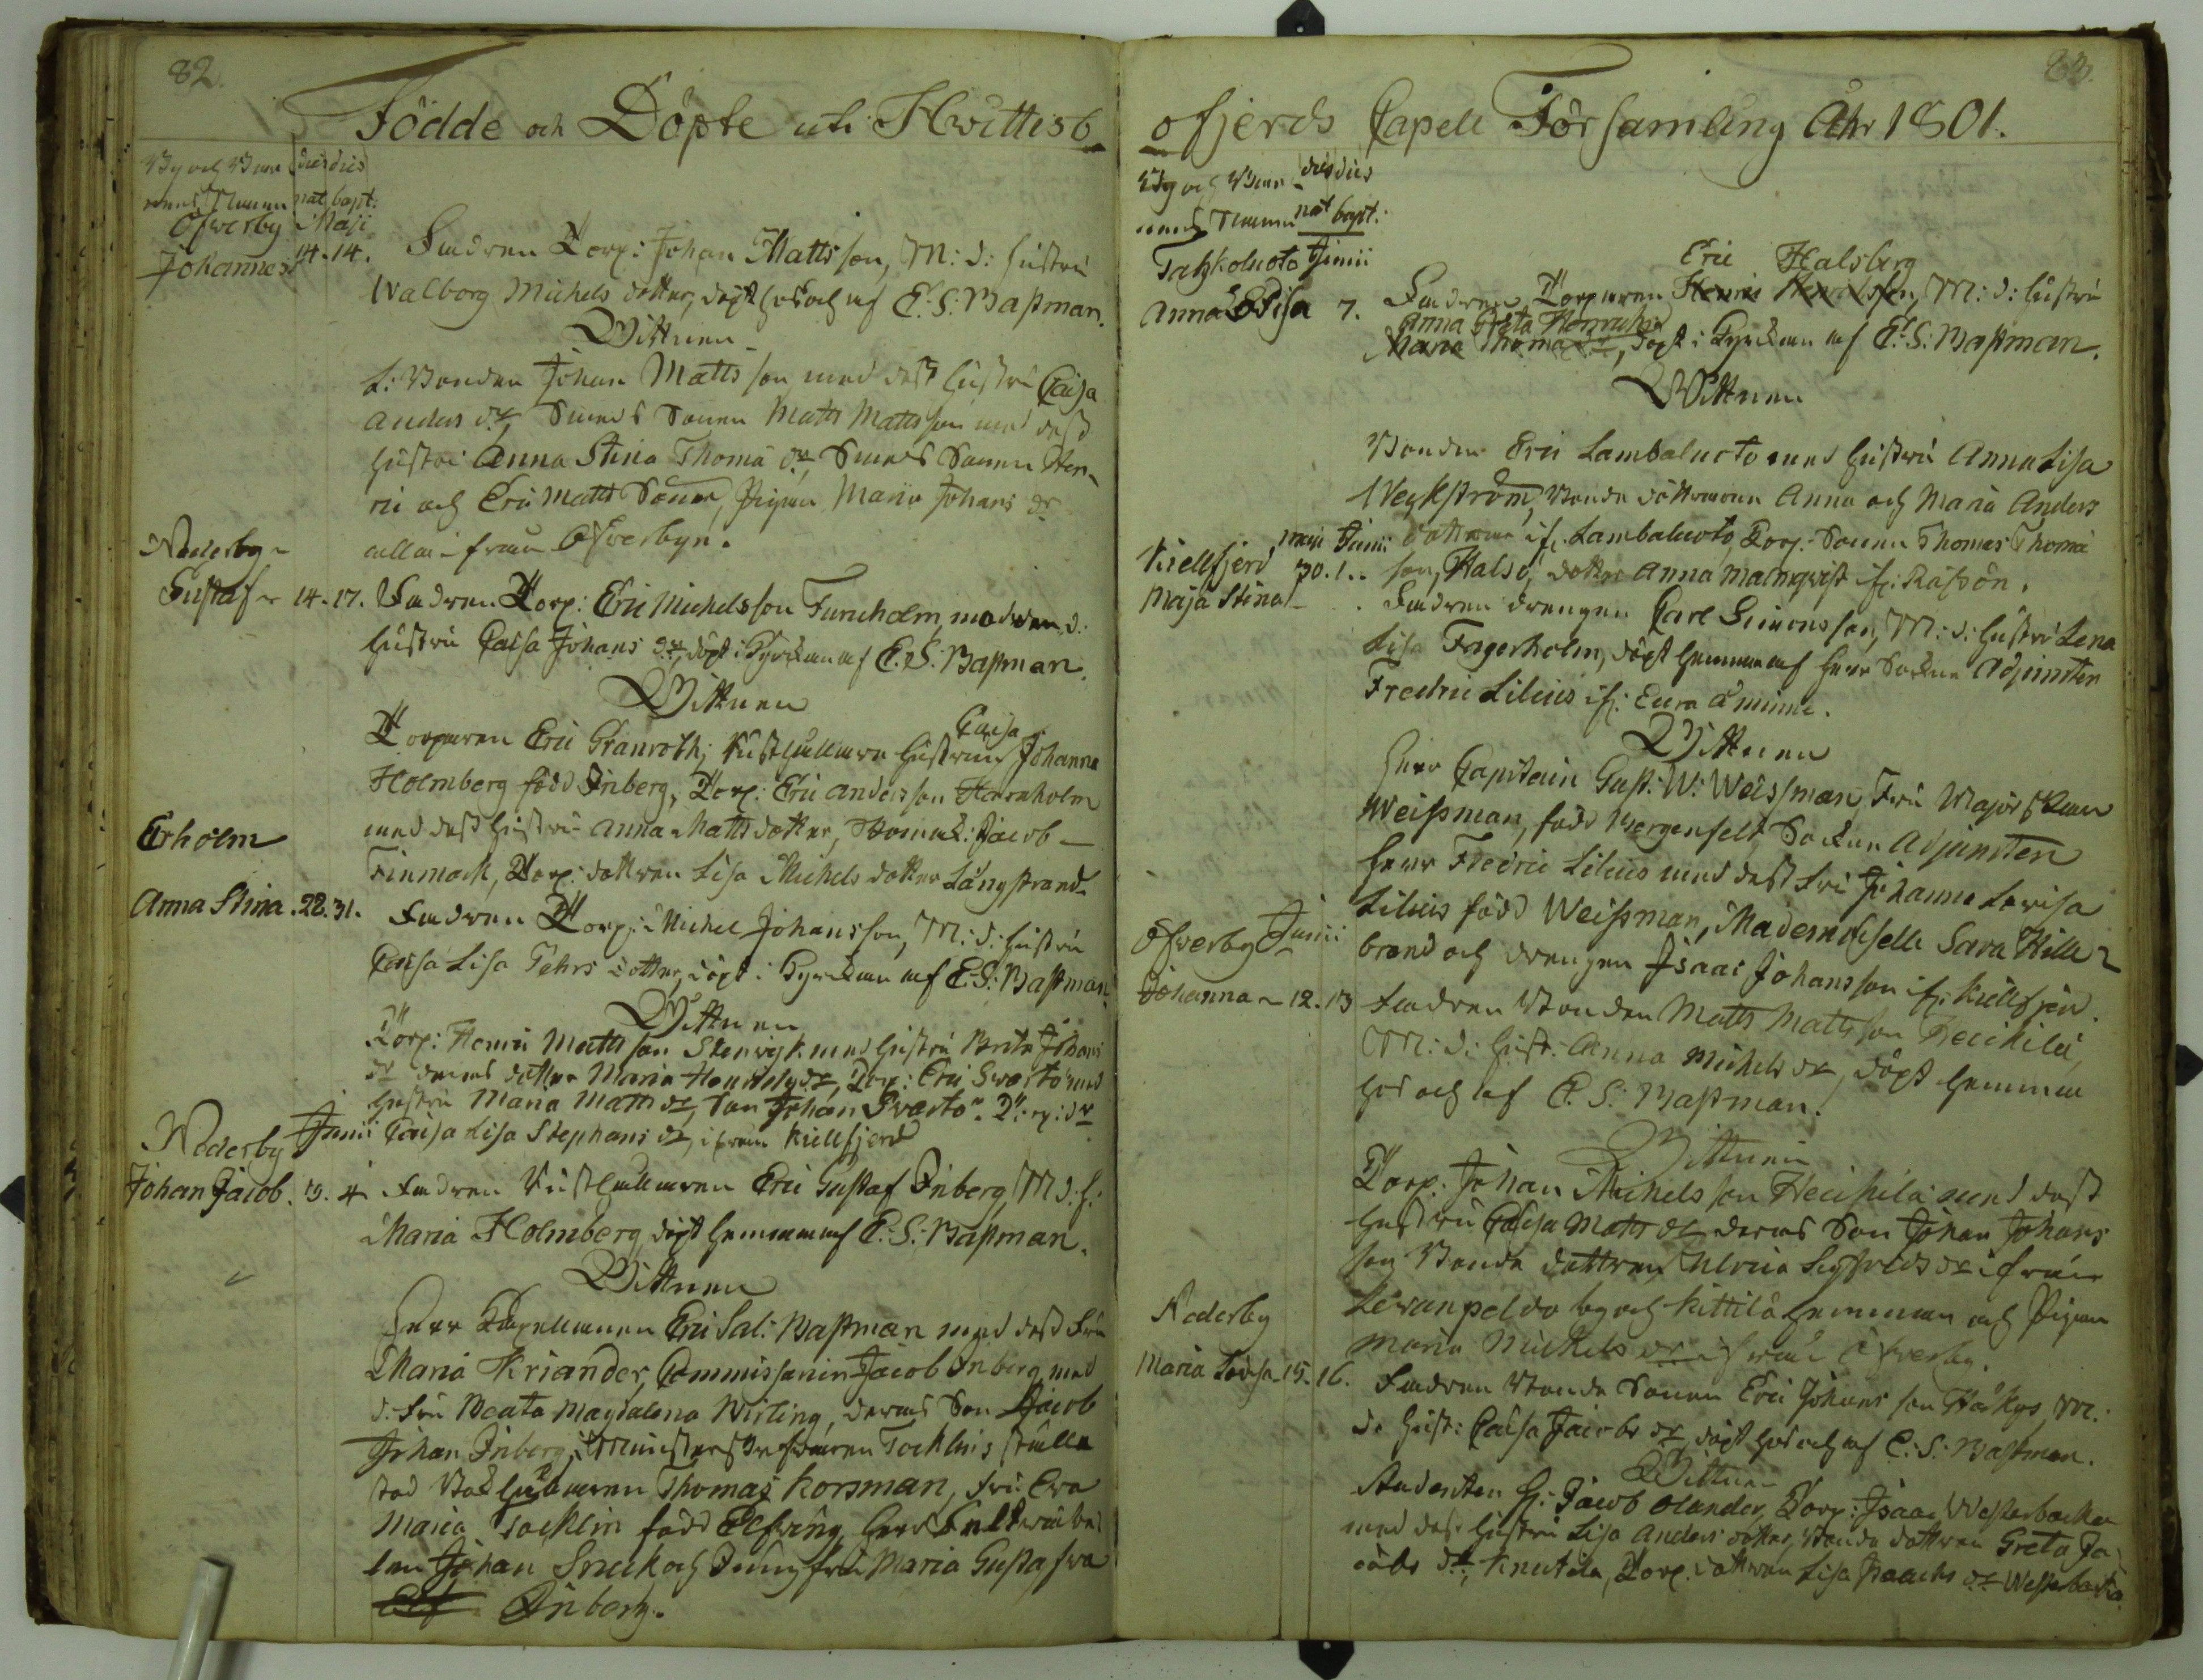 82.
Födde och Döpte uti Hwittisb
By och Barnens Namn
dies nat
dies bapt.
Öfwerby Maji
Johannes 14. 14. Fadren Torp: Johan Matts son, M: d: hustru
Walborg Michels dotter, döpt hos och af E. S: Bassman.
Wittnen
L: Bonden Johan Matts son med dess hustru Caisa
Anders dr, Smeds Sonen Matts Matts son med dess
hustru Anna Stina Thomæ dr, Smeds Sonen Hen-
ric och Eric Matts Söner, Pigan Maria Johans dr
alla ifrån Öfwerbyn.
Nederby
Gustaf 14. 17. Fadren Torp: Eric Michelsson Furuholm, modren d:
hustru Caisa Johans dr, döpt i Kyrckan af E. S. Bassman.
Wittnen
Torparen Eric Granroth, Rusthållare hustrun Caisa Johanna
Holmberg född Inberg, Torp: Eric Andersson
med dess hustru Anna Matts dotter, Jacob
Finmark, Torp: dottren Lisa Michels dotter Långstrand.
Erholm
Anna Stina. 22. 31. Fadren Torp: Michel Johansson, M: d: hustru
Caisa Lisa Pehrs dotter, döpt i Kyrckan af E. S: Bassman.
Wittnen
Torp: Henric Matts son Stenwijk med hustru Brita Johans
dr deras dotter Maria Henrichs dr, Torp: Eric Swartö med
hustru Maria Matts dr, Son Johan Swartö. Torp: dr
Caisa Lisa Stephans dr, ifrån Kiellfjerd
Nederby Junii
Johan Jacob. 3. 4. Fadren Rusthållaren Eric Gustaf Inberg, M: d: h:
Maria Holmberg, döpt hemma af E. S: Bassman.
Wittnen
Herr Capellanen Eric Sal: Bassman med dess Fru
Maria Kriander, Commissarien Jacob Inberg med
d: Fru Beata Magdalena Wirling, deras Son Jacob
Johan Inberg, Munsterskrifwaren Tocklins ställe
stod Bokhållaren Thomas Korsman, Fru Ewa
Maria Tocklin född Elfwing, Herr Fältwäbe
len Johan Sneck och Jungfru Maria Gustafwa
Inberg.
83.
ofjerds Capell Församling Åhr 1801.
By och Barnens Namn
dies nat
dies bapt.
Junii
Anna Lisa 7. Fadren Torparen Eric Halsberg Henric Henrics son, M: d: hustru
Anna Greta Henrichs dr Maria Thomæ dr, döpt i Kyrckan af E. S: Bassman.
Wittnen
Bonden Eric Lambaluoto med hustru Anna Lisa
Weykström, Bonde döttrarna Anna och Maria Anders
döttrar ifr. Lambaluoto, Torp. Sonen Thomas Thomæ
son, Halsö, dotter Anna Malmqvist ifr: Räfsön.
Kiellfjerd Maji Junii
Maja Stina 30. 1. Fadren drengen Carl Simonsson, M: d: hustru Lena
Lisa Fagerholm, döpt hemma af Herr Sockne Adjuncten
Fredric Lilius ifr: Eura Åminne.
Wittnen
Herr Capitain Gust: W: Weissman, Fru Majorskan
Weissman, född Bergenfelt, Sockne Adjuncten
Herr Fredric Lilius med dess Fru Johanna Lovisa
Lilius född Weissman, Mademoiselle Sara Hille
brand och drengen Isaac Johansson ifr: Kiellfjerd.
Öfwerby Junii
Johanna 12. 13 Fadren Bonden Matts Matts son Heickilä,
M: d: hust: Anna Michels dr, döpt hemma
hos och af E. S: Bassman.
Wittnen
Torp: Johan Michelsson Heickilä med dess
hustru Caisa Matts dr deras Son Johan Johans
son Bonde dottren Ulrica Sigfreds dr ifrån
Lewanpeldo by och Kittilä hemman och Pigan
Maria Michels dr ifrån Öfwerby.
Nederby
Maria Lovisa 15. 16. Fadren Bonde Sonen Eric Johans son M:
d: hust: Caisa Jacobs dr, döpt hos och af E. S: Bassman.
Wittnen
Studenten H: Jacob Olander, Torp: Isaac Westerbacka
med dess hustru Lisa Anders dotter, Bonde dottren Greta Ja-
cobs dr, Knutila, Torp. dottren Lisa Isaacks dr Westerbacka.